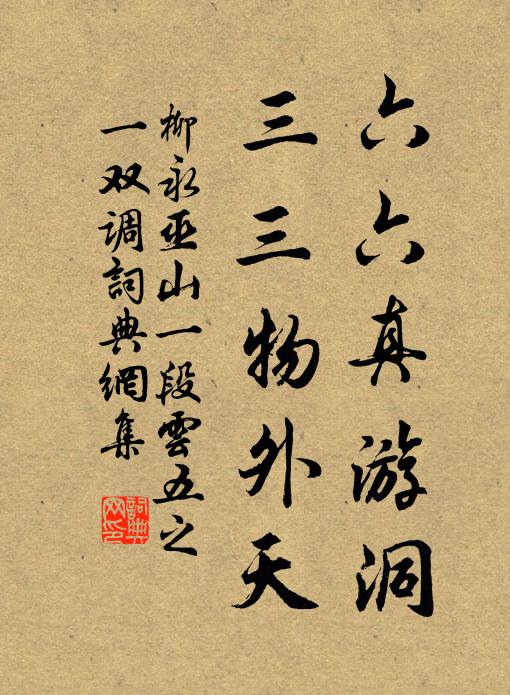 六六真游洞
三三物外天
柳永巫山一段雲五之
一双调詞典網集
詞典网印